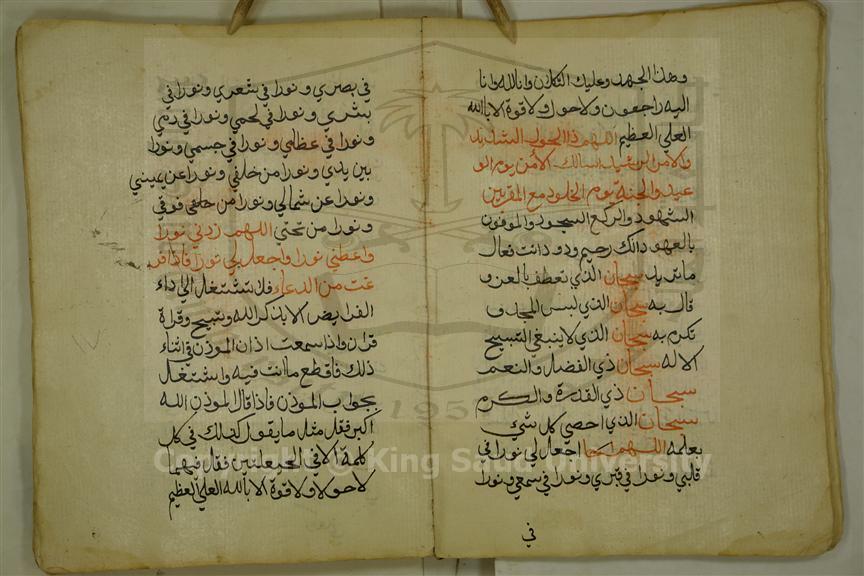 وهذا الجهد وعليك التكلان وانا لله وانا
اليه راجعون ولاحول ولاقوة الا بالله
العلي العظيم اللهم ذا الحبل الشديد
والامر الرشيد اسالك الامن يوم الو
عيد والجنة يوم الخلود مع المقربين
الشهود والركع السجود والموفون
بالعهود انك رحيم ودود وانت تفعال
ما تريد سبحان الذي تعطف بالعز و
قال به سبحان الذي لبس المجد و
تكرم به سبحان الذي لا ينبغي التسبيح
الا له سبحان ذي الفضل والنعم
سبحان ذي القدرة والكرم
سبحان الذي احصي كل شيء
بعلمه اللهم اجعل لي نورا في
قلبي ونورا في قبري ونورا في سمعي ونورا
في
في بصري ونورا في شعري ونورا في
بشري ونورا في لحمي ونورا في دمي
ونورا في عظامي ونورا في جسمي ونورا
بين يدي ونورا من خلفي ونورا عن يميني
ونورا عن شمالي ونورا من فوقي
ونورا من تحتي اللهم زدني نورا
واعطني نورا واجعل لي نورا فاذا فر
غت من الدعاء فلا تشتغل الي اداء
الفرايض الا بذكر الله وتسبيح وقراة
قران واذا سمعت اذان الموذن في اثناء
ذلك فاقطع ما انت فيه واشتغل
بجواب الموذن فاذا قال الموذن الله
اكبر فقل مثل ما يقول كذلك في كل
كلمة الا في الحيعلتين فقل فيهما
لا حول ولا قوة الا بالله العلي العظيم
Copyright © King Saud University
1957